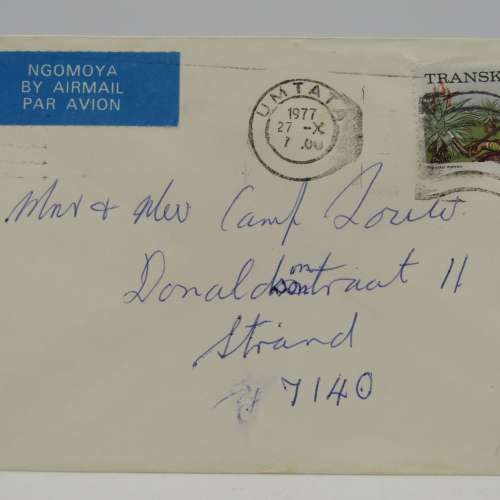 NGOMOYA
BY AIRMAIL
PAR AVION
UMTATA
1977
27 -X
7 .00
TRANSK
Mnr & Mev Camp Louw
straat 11
Strand
7140